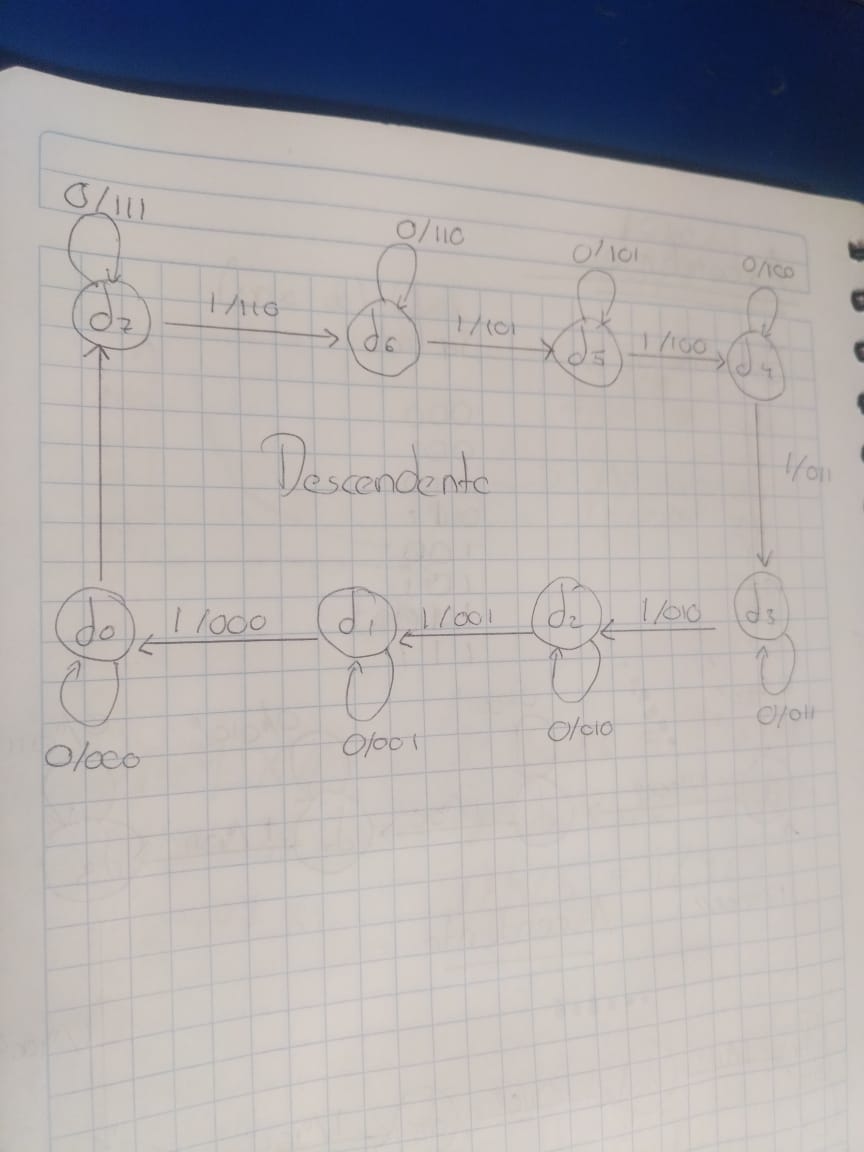 0/111
0/110
0/101
0/100
d7
1/110
d6
1/101
d5
1/100
d4
Descendente
1/011
d0
1/000
d1
1/001
d2
1/010
d3
0/000
0/001
0/010
0/011